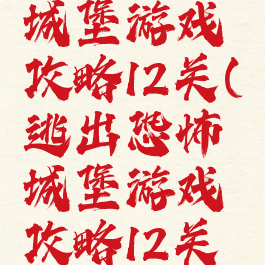 城堡游戏
攻略12关(
逃出恐怖
城堡游戏
攻略12关